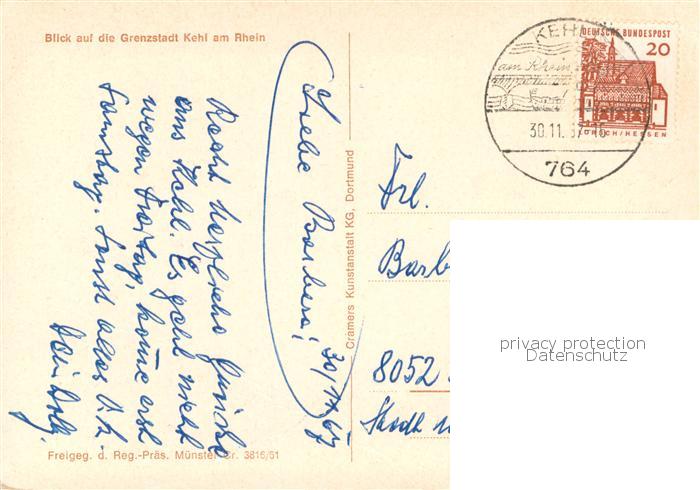 Blick auf die Grenzstadt Kehl am Rhein
Liebe Barbara!
30/11/67
Recht herzliche Grüsse
aus Kehl. Es geht nicht
wegen Freitag, komme erst
Samstag. Sonst alles O.k.
Dein
Freigeg. d. Reg.-Präs. Münster Nr. 3816/51
Cramers Kunstanstalt KG, Dortmund
KEHL
am Rhein
30.11.67
764
DEUTSCHE BUNDESPOST
20
LORSCH/HESSEN
Frl.
Barb
8052
privacy protection
Datenschutz